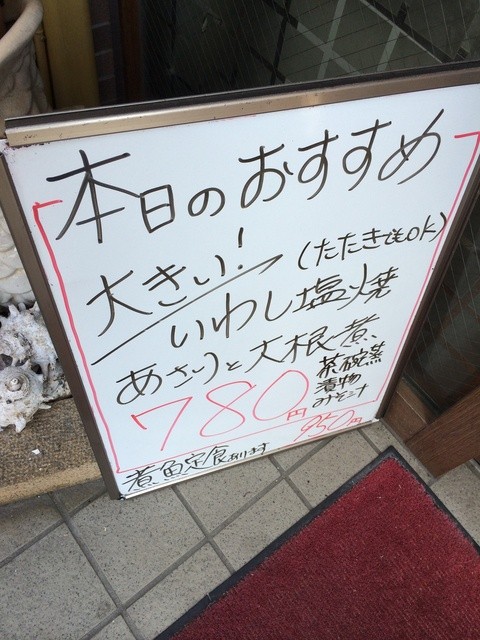 本日のおすすめ
大きい!
(たたきでもOK)
いわし塩焼
あさりと大根煮
780円
茶碗蒸
漬物
みそ汁
煮魚定食あります
950円